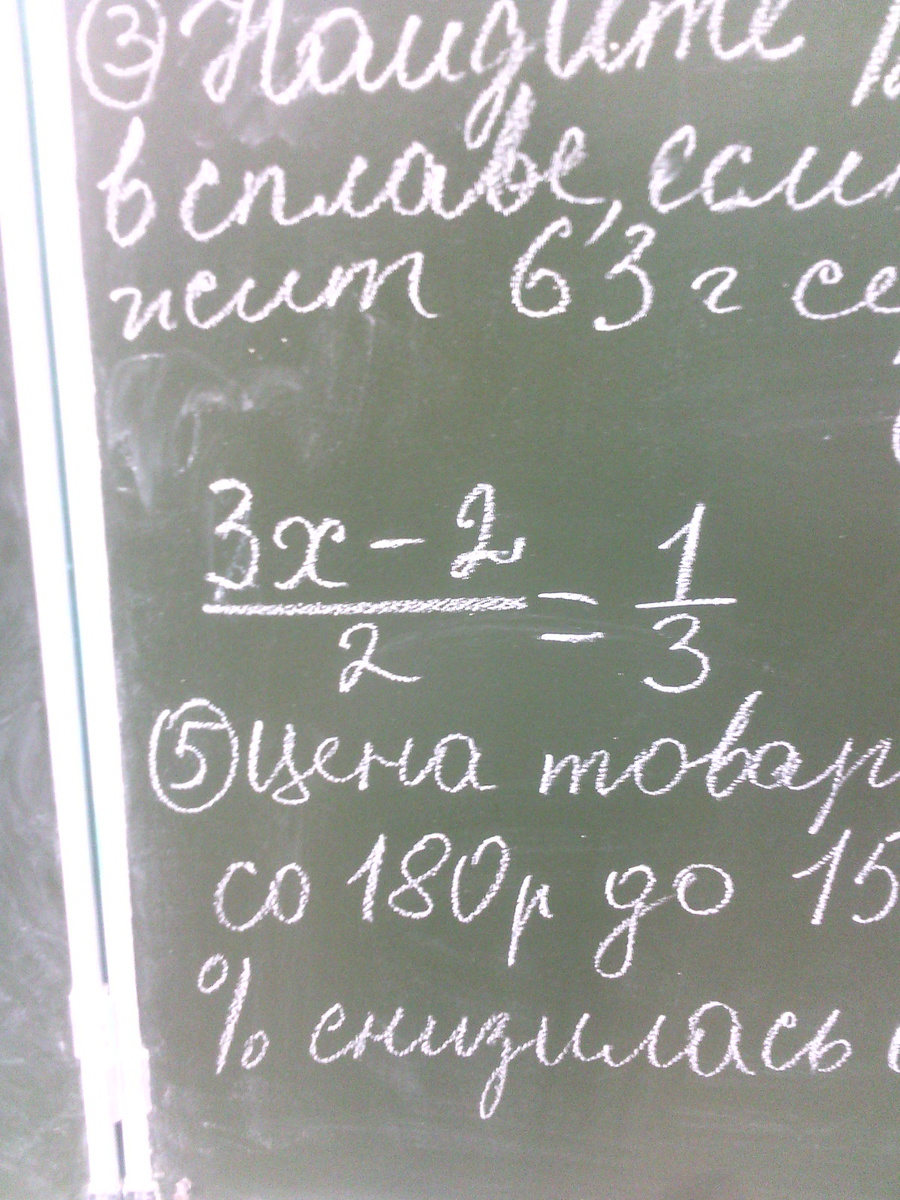 ③ Найдите
в сплаве, если
жит 63 г се
3x - 2 / 2 = 1 / 3
⑤ Цена товар
со 180р до 15
% снизилась